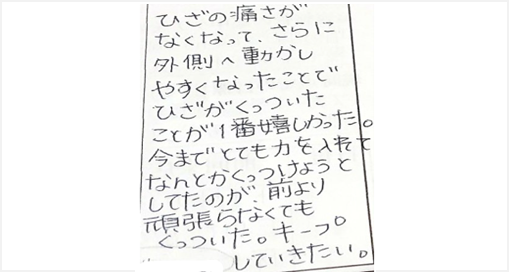 ひざの痛さが
なくなって、さらに
外側へ動かし
やすくなったことで
ひざがくっついた
ことが1番嬉しかった。
今までとても力を入れて
なんとかくっつけようと
してたのが、前より
頑張らなくても
くっついた。キープ
していきたい。